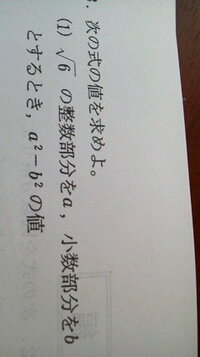 次の式の値を求めよ。
(1) √6 の整数部分をa，小数部分をb
とするとき，a²−b²の値